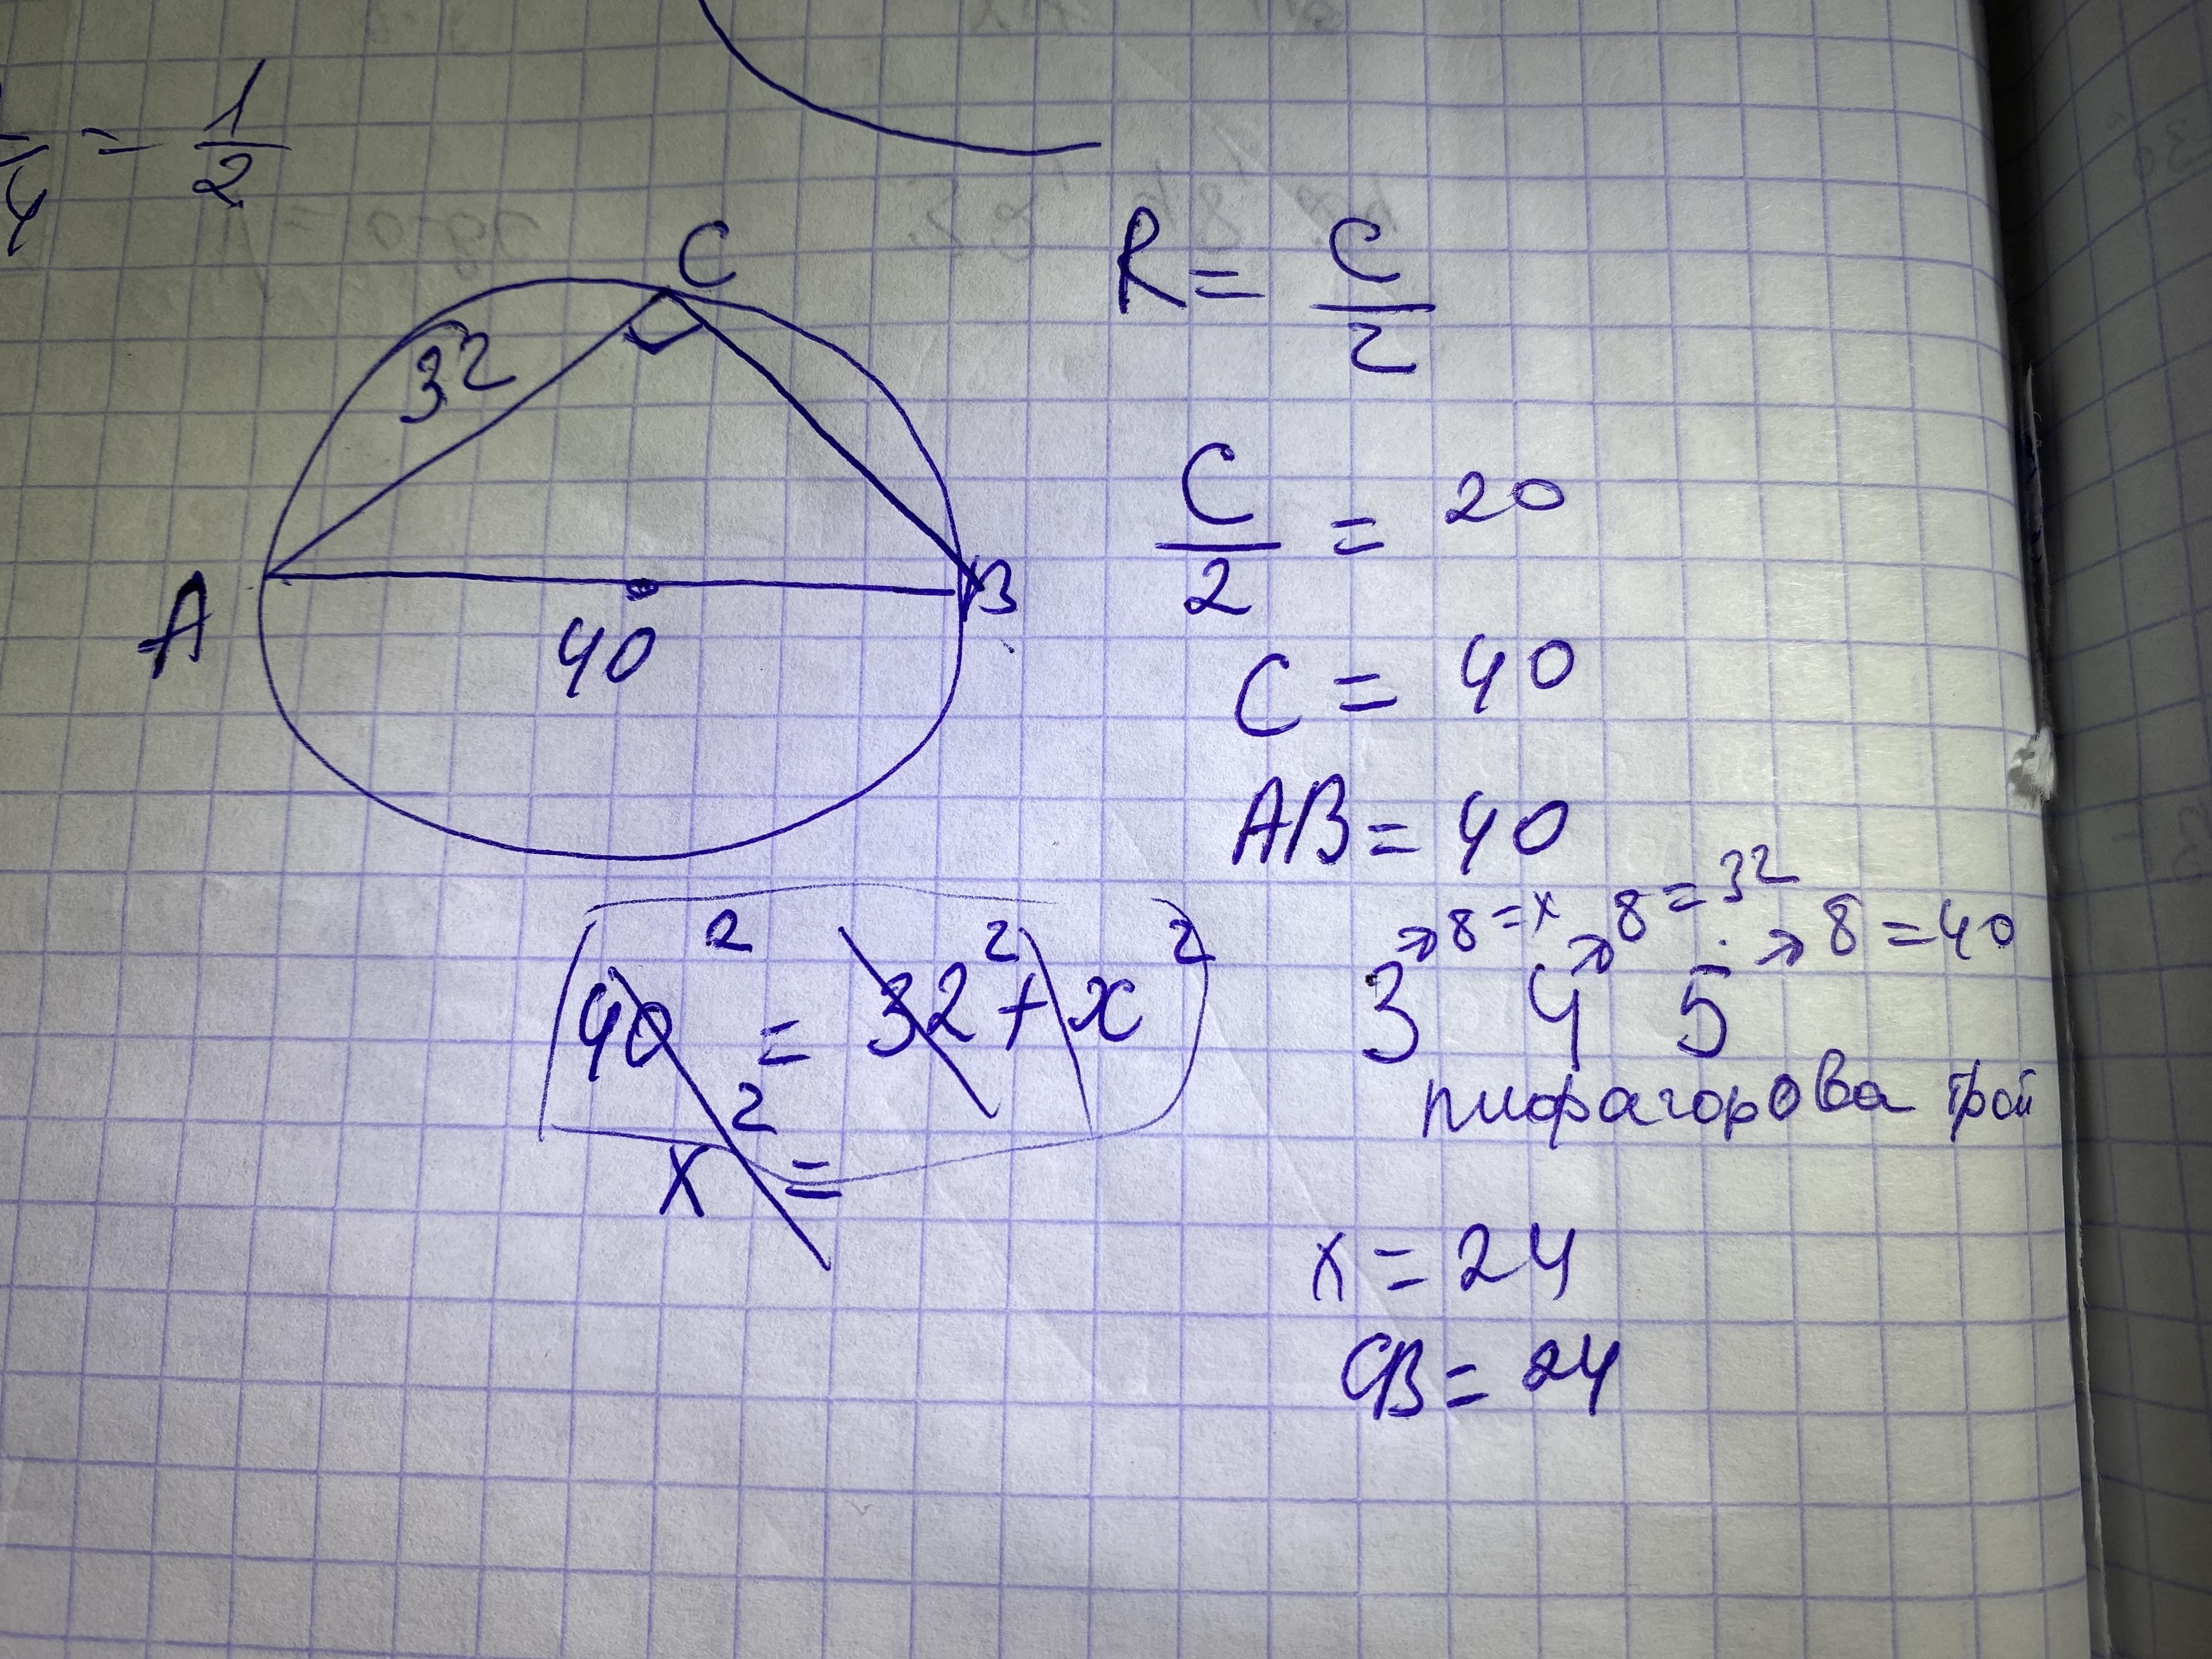 4 = 1/2
C
32
A
B
40
R = C/2
C/2 = 20
C = 40
AB = 40
40² = 32² + x²
x² =
→ 8 = x → 8 = 32 → 8 = 40
3 4 5
пифагорова трой
x = 24
CB = 24